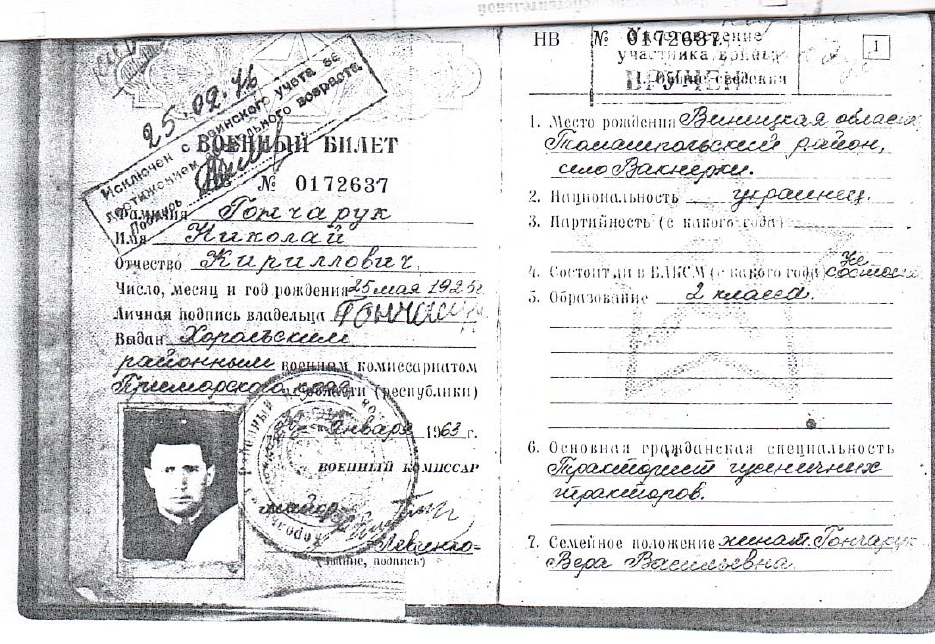 25.02.76
Исключен с воинского учета за
достижением предельного возраста
Подпись
ВОЕННЫЙ БИЛЕТ
№ 0172637
Фамилия Гончарук
Имя Николай
Отчество Кириллович
Число, месяц и год рождения 25 мая 1925 г.
Личная подпись владельца Гончарук
Выдан Хорольским
районным военным комиссариатом
Приморского края области (республики)
Января 1963 г.
ВОЕННЫЙ КОМИССАР
майор
Левченко
(звание, подпись)
НВ № 0172637
1
Удостоверение
участника войны
ВРУЧЕН
I. Общие сведения
1. Место рождения Виницкая область
Томашпольский район,
село Вакнерки.
2. Национальность украинец.
3. Партийность (с какого года)
4. Состоит ли в ВЛКСМ (с какого года) Не
состоит
5. Образование 2 класса.
6. Основная гражданская специальность
Тракторист гусеничных
тракторов.
7. Семейное положение женат. Гончарук
Вера Васильевна.